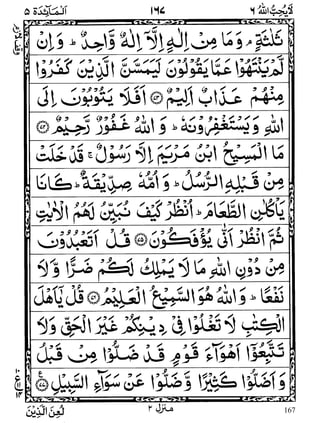 لَا يُحِبُّ اللّٰهُ ٦ ١٦٧ اَلْمَآئِدَة ٥
ثَلٰثَةٍ ۘ وَمَا مِنْ اِلٰهٍ اِلَّاۤ اِلٰهٌ وَّاحِدٌ ؕ وَاِنْ
لَّمْ يَنْتَهُوْا عَمَّا يَقُوْلُوْنَ لَيَمَسَّنَّ الَّذِيْنَ كَفَرُوْا
مِنْهُمْ عَذَابٌ اَلِيْمٌ ﴿۷۳﴾ اَفَلَا يَتُوْبُوْنَ اِلَى
اللّٰهِ وَيَسْتَغْفِرُوْنَهٗ ؕ وَاللّٰهُ غَفُوْرٌ رَّحِيْمٌ ﴿۷۴﴾
مَا الْمَسِيْحُ ابْنُ مَرْيَمَ اِلَّا رَسُوْلٌ ۚ قَدْ خَلَتْ
مِنْ قَبْلِهِ الرُّسُلُ ؕ وَاُمُّهٗ صِدِّيْقَةٌ ؕ كَانَا
يَاْكُلٰنِ الطَّعَامَ ؕ اُنْظُرْ كَيْفَ نُبَيِّنُ لَهُمُ الْاٰيٰتِ
ثُمَّ انْظُرْ اَنّٰى يُؤْفَكُوْنَ ﴿۷۵﴾ قُلْ اَتَعْبُدُوْنَ
مِنْ دُوْنِ اللّٰهِ مَا لَا يَمْلِكُ لَكُمْ ضَرًّا وَّلَا
نَفْعًا ؕ وَاللّٰهُ هُوَ السَّمِيْعُ الْعَلِيْمُ ﴿۷۶﴾ قُلْ يٰۤاَهْلَ
الْكِتٰبِ لَا تَغْلُوْا فِيْ دِيْنِكُمْ غَيْرَ الْحَقِّ وَلَا
تَتَّبِعُوْۤا اَهْوَآءَ قَوْمٍ قَدْ ضَلُّوْا مِنْ قَبْلُ
وَاَضَلُّوْا كَثِيْرًا وَّضَلُّوْا عَنْ سَوَآءِ السَّبِيْلِ ﴿۷۷﴾
لُعِنَ الَّذِيْنَ منزل ٢ 167